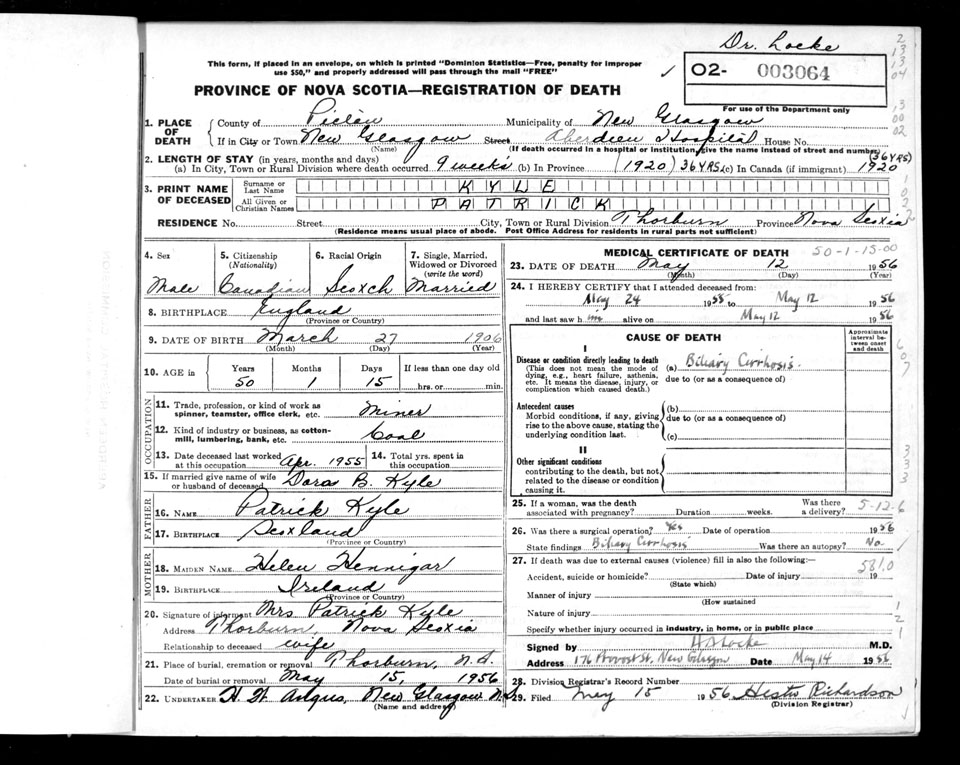 Dr. Locke
This form, if placed in an envelope, on which is printed "Dominion Statistics—Free, penalty for improper
use $50," and properly addressed will pass through the mail "FREE"
02- 003064
For use of the Department only
PROVINCE OF NOVA SCOTIA—REGISTRATION OF DEATH
1. PLACE OF DEATH
County of Pictou Municipality of New Glasgow
If in City or Town New Glasgow Street Aberdeen Hospital House No.
(Name) (If death occurred in a hospital or institution, give the name instead of street and number)
2. LENGTH OF STAY (in years, months and days) (36 YRS)
(a) In City, Town or Rural Division where death occurred 9 weeks (b) In Province (1920) 36 YRS (c) In Canada (if immigrant) 1920
3. PRINT NAME OF DECEASED
Surname or Last Name KYLE
All Given or Christian Names PATRICK
RESIDENCE No. Street City, Town or Rural Division Thorburn Province Nova Scotia
(Residence means usual place of abode. Post Office Address for residents in rural parts not sufficient)
4. Sex
Male
5. Citizenship
(Nationality)
Canadian
6. Racial Origin
Scotch
7. Single, Married,
Widowed or Divorced
(write the word)
Married
8. BIRTHPLACE England
(Province or Country)
9. DATE OF BIRTH March 27 1906
(Month) (Day) (Year)
10. AGE in
Years Months Days If less than one day old
50 1 15 hrs. or min.
OCCUPATION
11. Trade, profession, or kind of work as
spinner, teamster, office clerk, etc. Miner
12. Kind of industry or business, as cotton-
mill, lumbering, bank, etc. Coal
13. Date deceased last worked
at this occupation Apr. 1955
14. Total yrs. spent in
this occupation
15. If married give name of wife
or husband of deceased Dora B. Kyle
FATHER
16. NAME Patrick Kyle
17. BIRTHPLACE Scotland
(Province or Country)
MOTHER
18. MAIDEN NAME Helen Hennigar
19. BIRTHPLACE Ireland
(Province or Country)
20. Signature of informant Mrs Patrick Kyle
Address Thorburn, Nova Scotia
Relationship to deceased wife
21. Place of burial, cremation or removal Thorburn, N.S.
Date of burial or removal May 15, 1956
22. UNDERTAKER H. W. Angus, New Glasgow N.S.
(Name and address)
MEDICAL CERTIFICATE OF DEATH 50-1-15-00
23. DATE OF DEATH May 12 1956
(Month) (Day) (Year)
24. I HEREBY CERTIFY that I attended deceased from:
May 24 1955 to May 12 1956
and last saw him alive on May 12 1956
CAUSE OF DEATH
Approximate
interval be-
tween onset
and death
I
Disease or condition directly leading to death
(This does not mean the mode of
dying, e.g., heart failure, asthenia,
etc. It means the disease, injury, or
complication which caused death.)
(a) Biliary Cirrhosis.
due to (or as a consequence of)
Antecedent causes
Morbid conditions, if any, giving
rise to the above cause, stating the
underlying condition last.
(b)
due to (or as a consequence of)
(c)
II
Other significant conditions
contributing to the death, but not
related to the disease or condition
causing it.
25. If a woman, was the death
associated with pregnancy? Duration weeks. Was there
a delivery? 5-12-6
26. Was there a surgical operation? Yes Date of operation 1956
State findings Biliary Cirrhosis Was there an autopsy? No
27. If death was due to external causes (violence) fill in also the following:—
581.0
Accident, suicide or homicide? Date of injury 19
(State which)
Manner of injury
(How sustained
Nature of injury
Specify whether injury occurred in industry, in home, or in public place
Signed by H A Locke M.D.
Address 176 Provost St. New Glasgow Date May 14 1956
28. Division Registrar's Record Number
29. Filed May 15 1956 Hester Richardson
(Division Registrar)